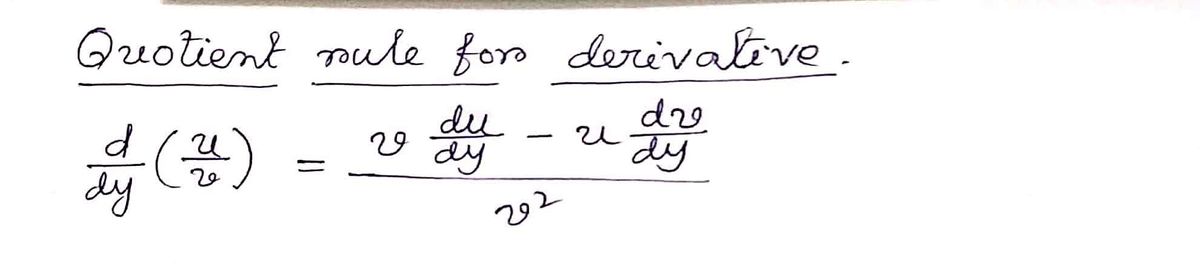 Quotient rule for derivative.
d/dy (u/v) = (v du/dy - u dv/dy) / v²